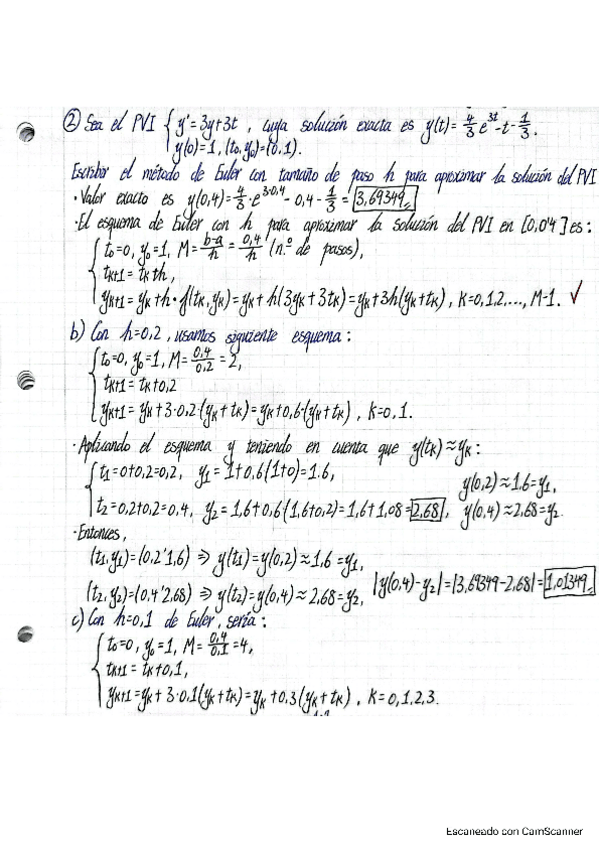 ② Sea el PVI { y' = 3y+3t , cuya solución exacta es y(t) = 4/3 e^3t - t - 1/3.
y(0) = 1, (t0, y0) = (0,1).
Escribir el método de Euler con tamaño de paso h para aproximar la solución del PVI
· Valor exacto es y(0,4) = 4/3 · e^3·0,4 - 0,4 - 1/3 = 3,69349
· El esquema de Euler con h para aproximar la solución del PVI en [0,0'4] es:
t0=0, y0=1, M = b-a/h = 0,4/h (n.º de pasos),
tk+1 = tk+h,
yk+1 = yk + h · f(tk, yk) = yk + h(3yk+3tk) = yk+3h(yk+tk) , K=0,1,2,..., M-1. ✓
b) Con h=0,2 , usamos siguiente esquema:
t0=0, y0=1, M = 0,4/0,2 = 2,
tk+1 = tk+0,2
yk+1 = yk + 3·0,2·(yk+tk) = yk+0,6·(yk+tk) , K=0,1.
· Aplicando el esquema y teniendo en cuenta que y(tk) ≈ yk:
t1 = 0+0,2 = 0,2, y1 = 1+0,6(1+0) = 1.6, y(0,2) ≈ 1.6 = y1,
t2 = 0,2+0,2 = 0.4, y2 = 1,6+0,6·(1,6+0,2) = 1,6+1,08 = 2,68, y(0,4) ≈ 2,68 = y2.
· Entonces,
(t1, y1) = (0.2'1,6) ⇒ y(t1) = y(0,2) ≈ 1,6 = y1,
(t2, y2) = (0,4'2.68) ⇒ y(t2) = y(0,4) ≈ 2,68 = y2, |y(0,4) - y2| = |3,69349 - 2,68| = 1,01349
c) Con h=0,1 de Euler, sería:
t0=0, y0=1, M = 0,4/0,1 = 4,
tk+1 = tk+0,1,
yk+1 = yk + 3·0.1(yk+tk) = yk+0,3(yk+tk) , K=0,1,2,3.
Escaneado con CamScanner